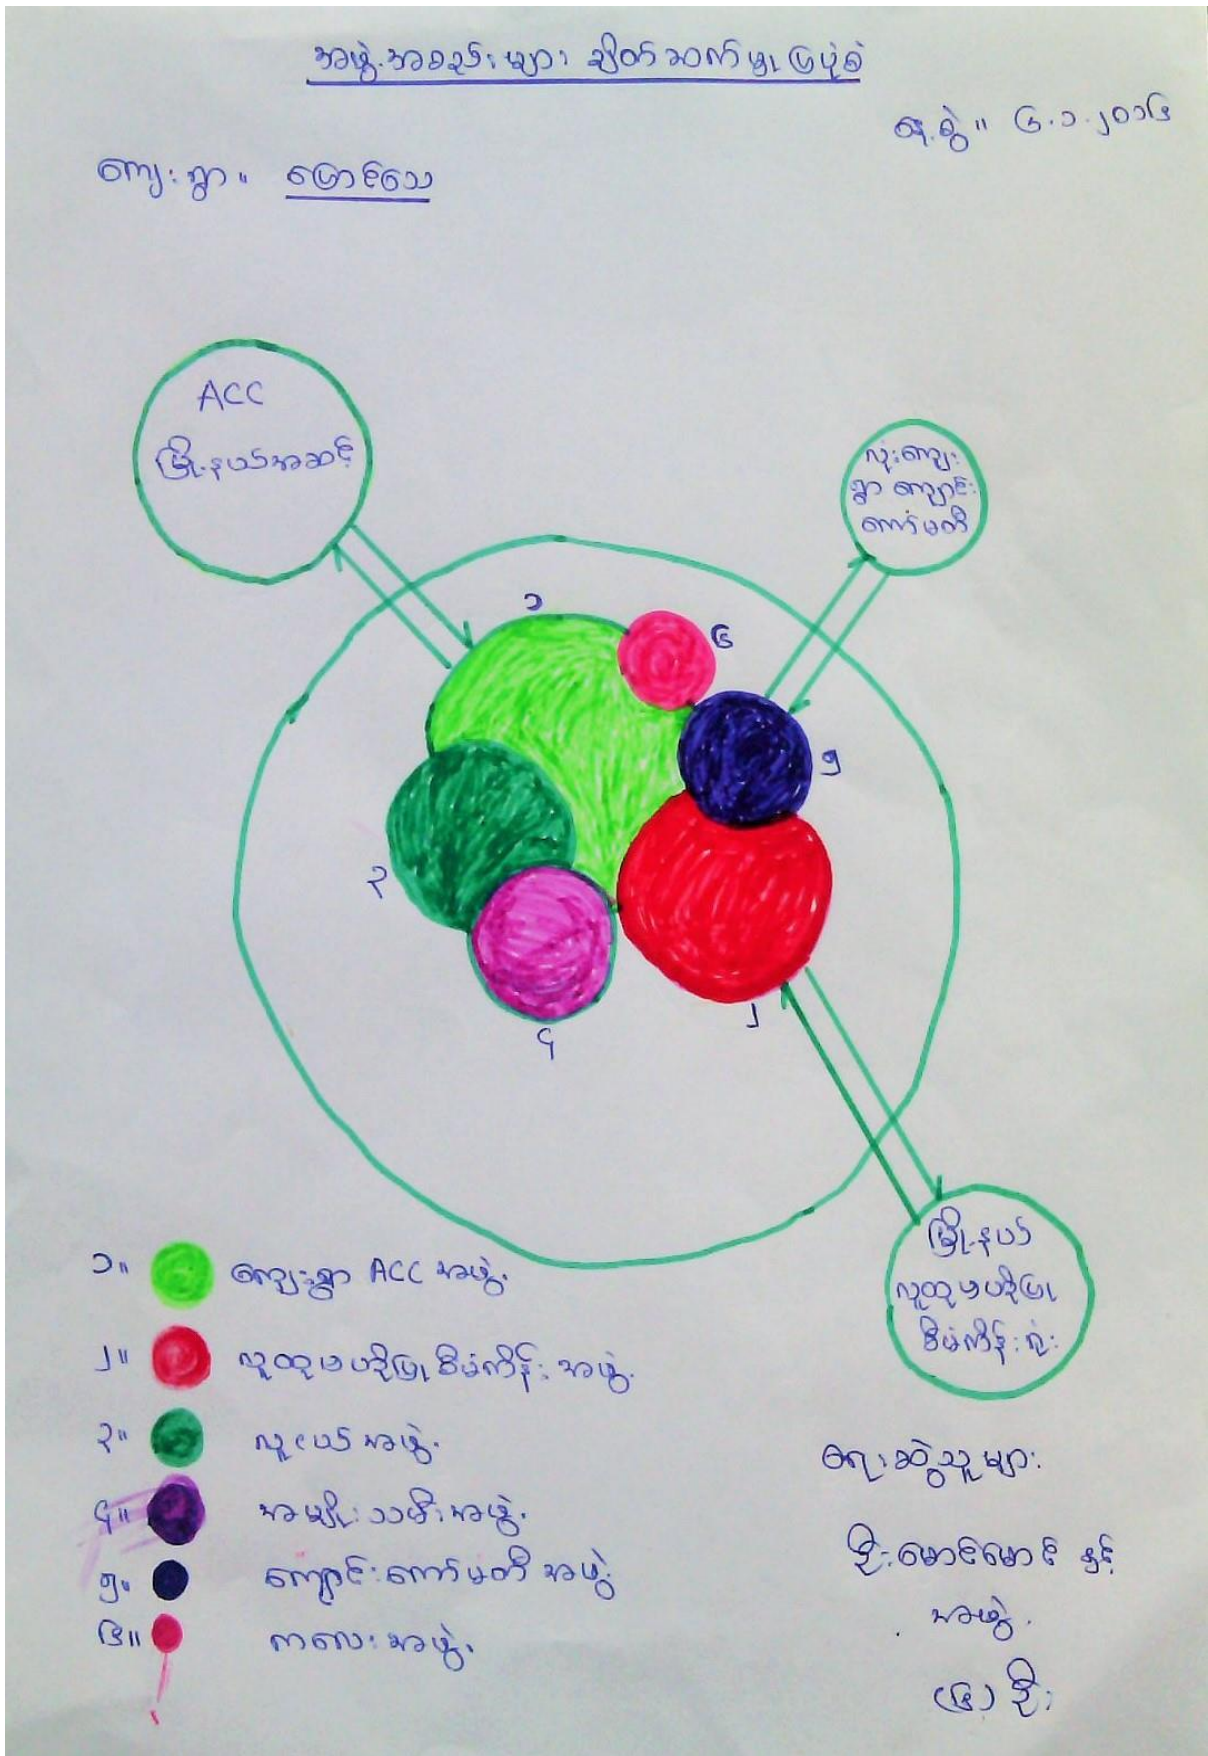 အဖွဲ့အစည်းများ ချိတ်ဆက်မှုပြပုံစံ
နေ့စွဲ။ ၆.၁.၂၀၁၆
ကျေးရွာ။ မြောင်သေ
ACC
မြို့နယ်အဆင့်
လုံးကျေး
ရွာ ကျောင်း
ကော်မတီ
၁
၆
၅
၃
၂
၄
မြို့နယ်
လူထုဗဟိုပြု
စီမံကိန်းရုံး
၁။ ကျေးရွာ ACC အဖွဲ့
၂။ လူထုဗဟိုပြုစီမံကိန်း အဖွဲ့
၃။ လူငယ်အဖွဲ့
၄။ အမျိုးသမီးအဖွဲ့
၅။ ကျောင်းကော်မတီအဖွဲ့
၆။ ကလေးအဖွဲ့
ရေးဆွဲသူများ
ဦးမောင်မောင် နှင့်
အဖွဲ့
(၆) ဦး